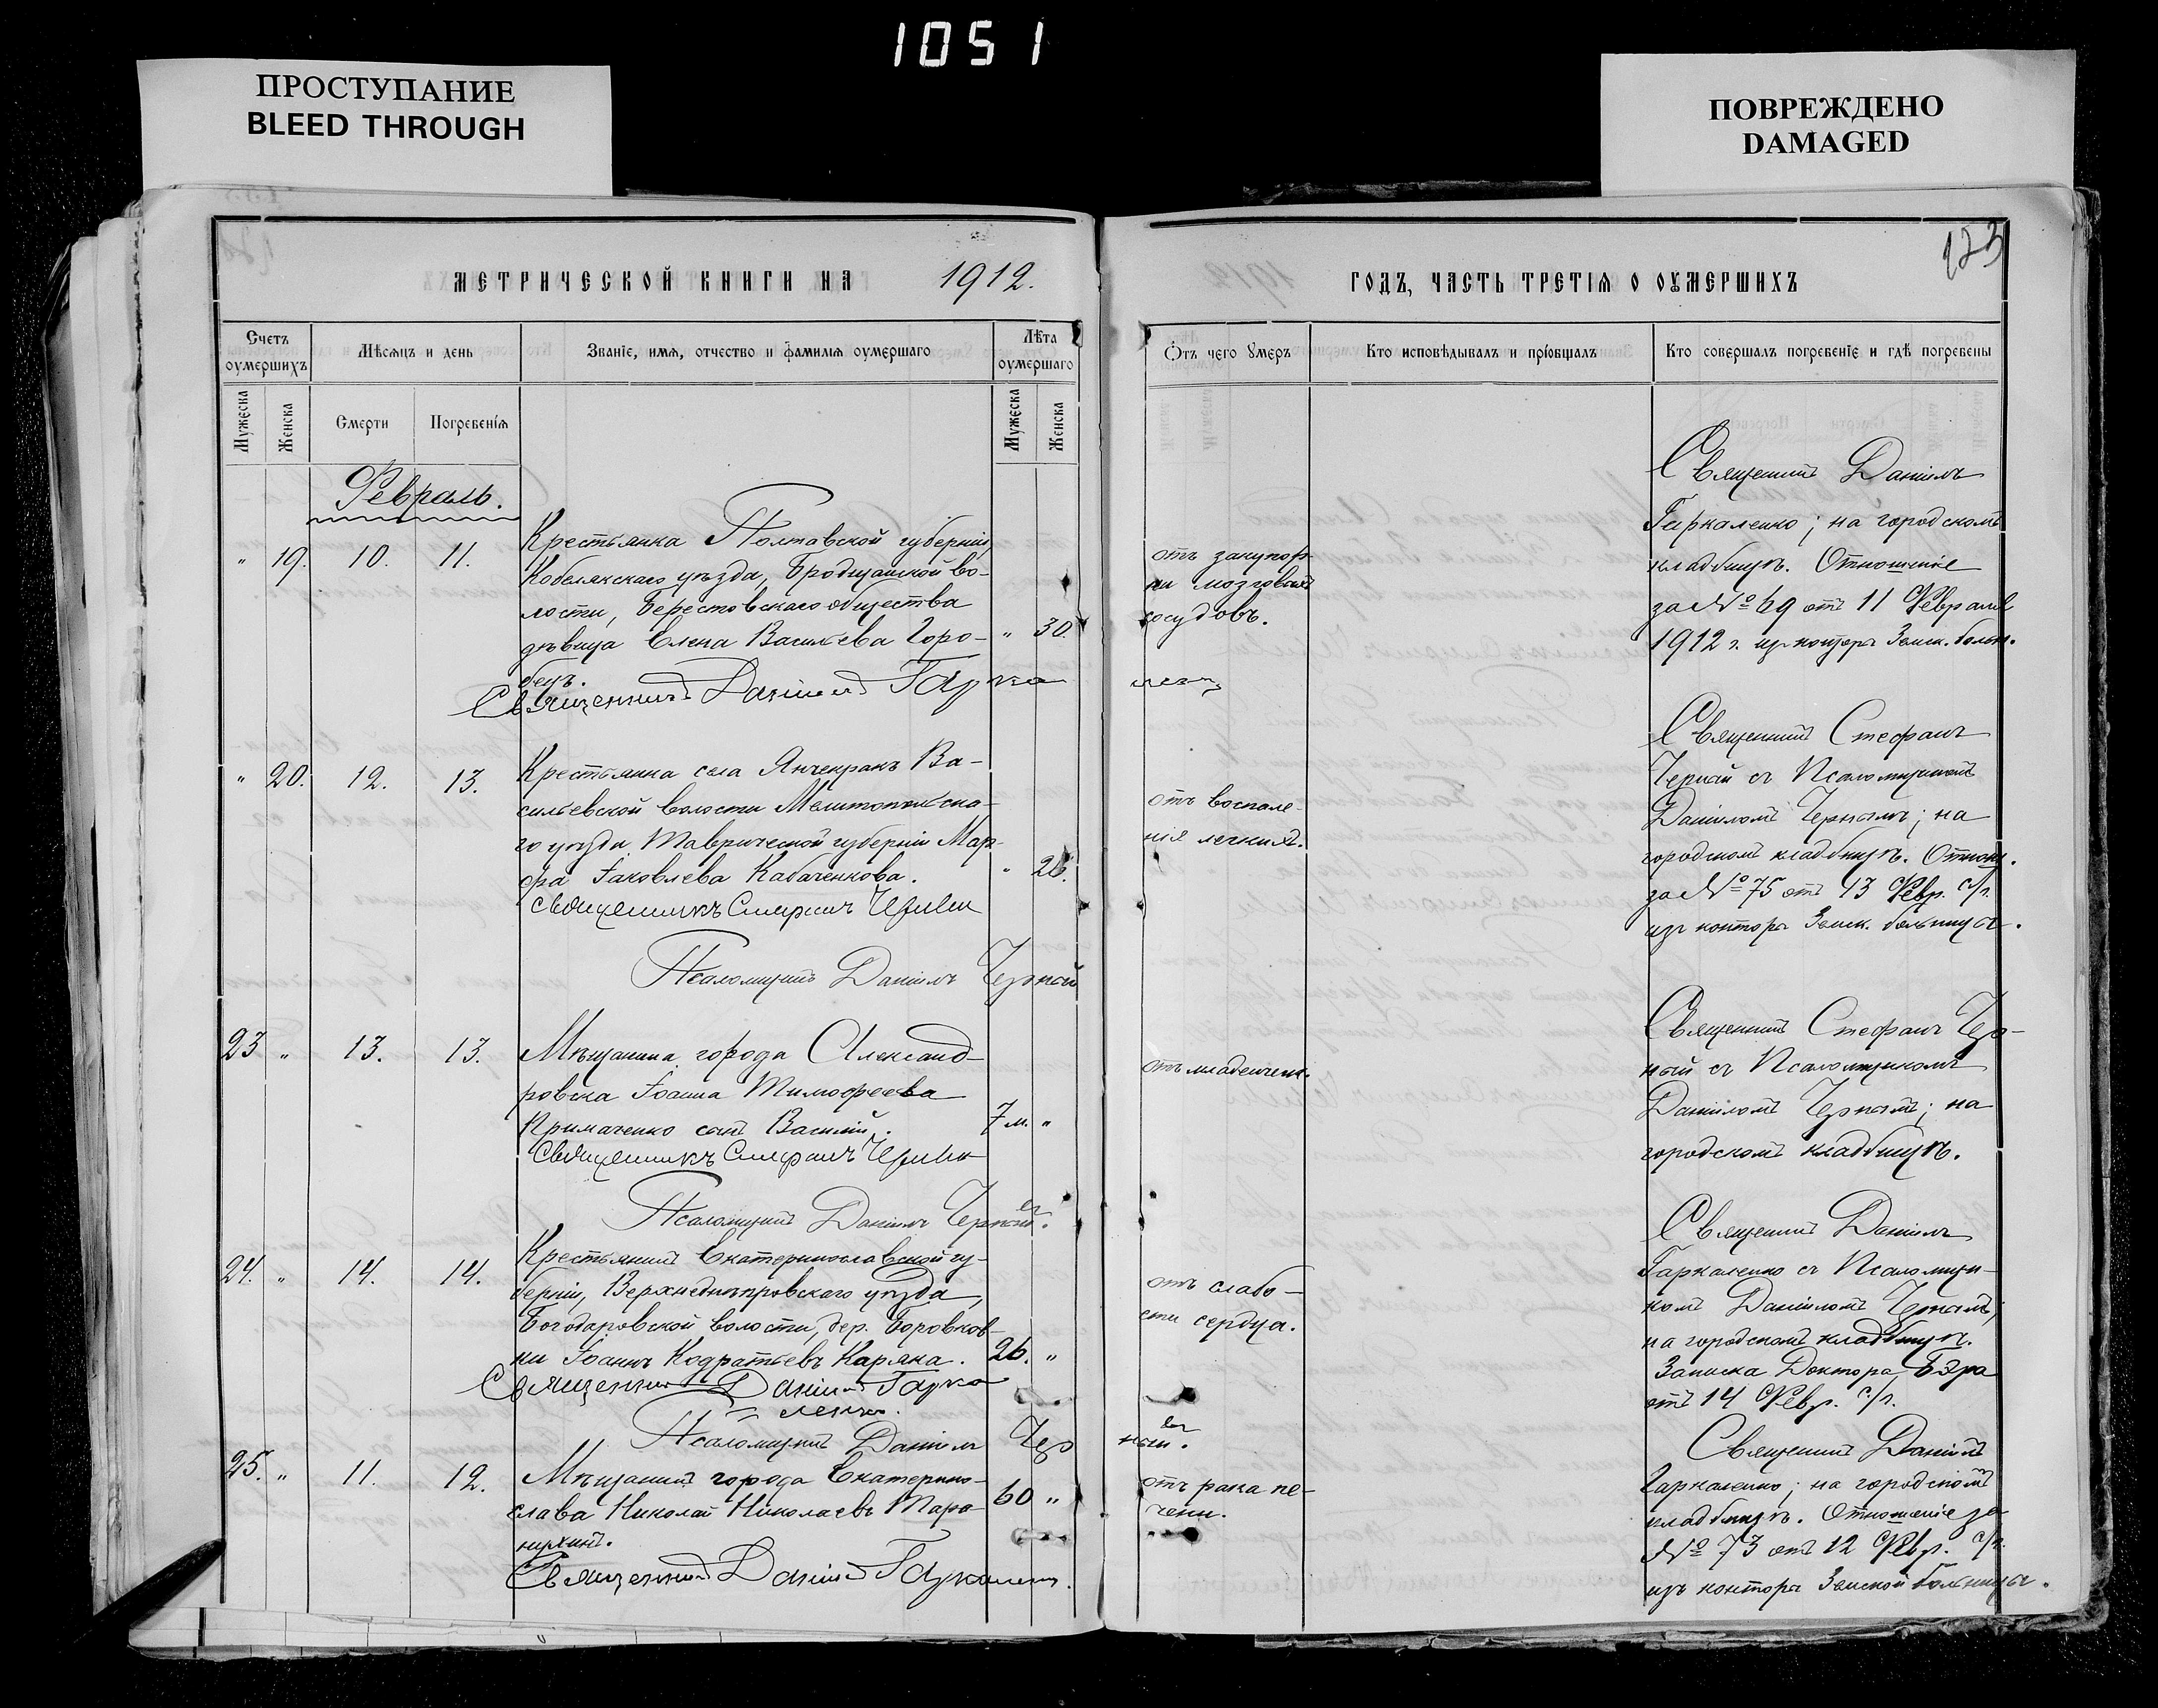 1051
ПРОСТУПАНИЕ
BLEED THROUGH
ПОВРЕЖДЕНО
DAMAGED
МЕТРИЧЕСКОЙ КНИГИ НА 1912.
Счетъ оумершихъ
Мѣсяцъ и день
Званіе, имя, отчество и фамилія оумершаго
Лѣта оумершаго
Мужеска
Женска
Смерти
Погребенія
Мужеска
Женска
Февраль.
" 19. 10. 11.
Крестьянка Полтавской губерніи,
Кобелякскаго уѣзда, Бродщанской во-
лости, Берестовскаго общества
дѣвица Елена Васильева Горо- " 30.
бецъ.
Священникъ Даніилъ Гарка
" 20. 12. 13.
Крестьянка села Янчекракъ Ва-
сильевской волости Мелитопольска-
го уѣзда Таврической губерніи Мар-
фа Іаковлева Кабаченкова. " 26.
Священникъ Стефанъ Черный
Псаломщикъ Даніилъ Черный
23 " 13. 13.
Мѣщанина города Александ-
ровска Іоанна Тимофеева
Примаченко сынъ Василій. 7 м. "
Священникъ Стефанъ Черный
Псаломщикъ Даніилъ Черный.
24. " 14. 14.
Крестьянинъ Екатеринославской гу-
берніи, Верхнеднѣпровскаго уѣзда,
Богодаровской волости, дер. Боровков-
ки Іоаннъ Кодратьевъ Каряка. 26. "
Священникъ Даніилъ Гарка
ленко.
Псаломщикъ Даніилъ Чер
25. " 11. 12.
Мѣщанинъ города Екатерино-
слава Николай Николаевъ Тара 60 "
Священникъ Даніилъ Гаркаленко.
ГОДЪ, ЧАСТЬ ТРЕТІЯ О ОУМЕРШИХЪ
123
Отъ чего умеръ
Кто исповѣдывалъ и пріобщалъ
Кто совершалъ погребеніе и гдѣ погребены
отъ закупор-
ки мозговыхъ
сосудовъ.
ленко
Священникъ Даніилъ
Гаркаленко; на городскомъ
кладбищѣ. Отношеніе
за № 69 отъ 11 Февраля
1912 г. изъ конторы Земск. больн.
отъ воспале-
нія легкихъ.
Священникъ Стефанъ
Черный съ Псаломщикомъ
Даніиломъ Чернымъ; на
городскомъ кладбищѣ. Отнош.
за № 75 отъ 13 Февр. с/г.
изъ конторы Земск. больницы.
отъ младенческ.
Священникъ Стефанъ Чер-
ный съ Псаломщикомъ
Даніиломъ Чернымъ; на
городскомъ кладбищѣ.
отъ слабо-
сти сердца.
ный.
Священникъ Даніилъ
Гаркаленко съ Псаломщи-
комъ Даніиломъ Чернымъ;
на городскомъ кладбищѣ.
Записка Доктора Бэра
отъ 14 Февр. с/г.
отъ рака пе-
чени.
Священникъ Даніилъ
Гаркаленко; на городскомъ
кладбищѣ. Отношеніе за
№ 73 отъ 12 Февр. с/г.
изъ конторы Земской больницы.